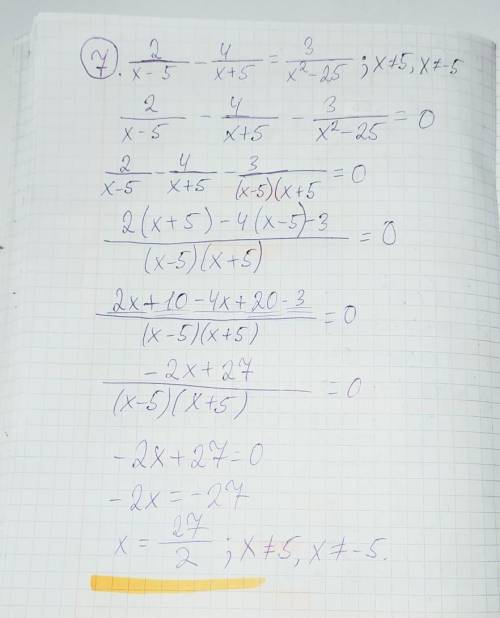 7. 2/(x-5) - 4/(x+5) = 3/(x²-25) ; x≠5, x≠-5
2/(x-5) - 4/(x+5) - 3/(x²-25) = 0
2/(x-5) - 4/(x+5) - 3/((x-5)(x+5 = 0
(2(x+5)-4(x-5)-3)/((x-5)(x+5)) = 0
(2x+10-4x+20-3)/((x-5)(x+5)) = 0
(-2x+27)/((x-5)(x+5)) = 0
-2x+27=0
-2x=-27
x = 27/2 ; x≠5, x≠-5.